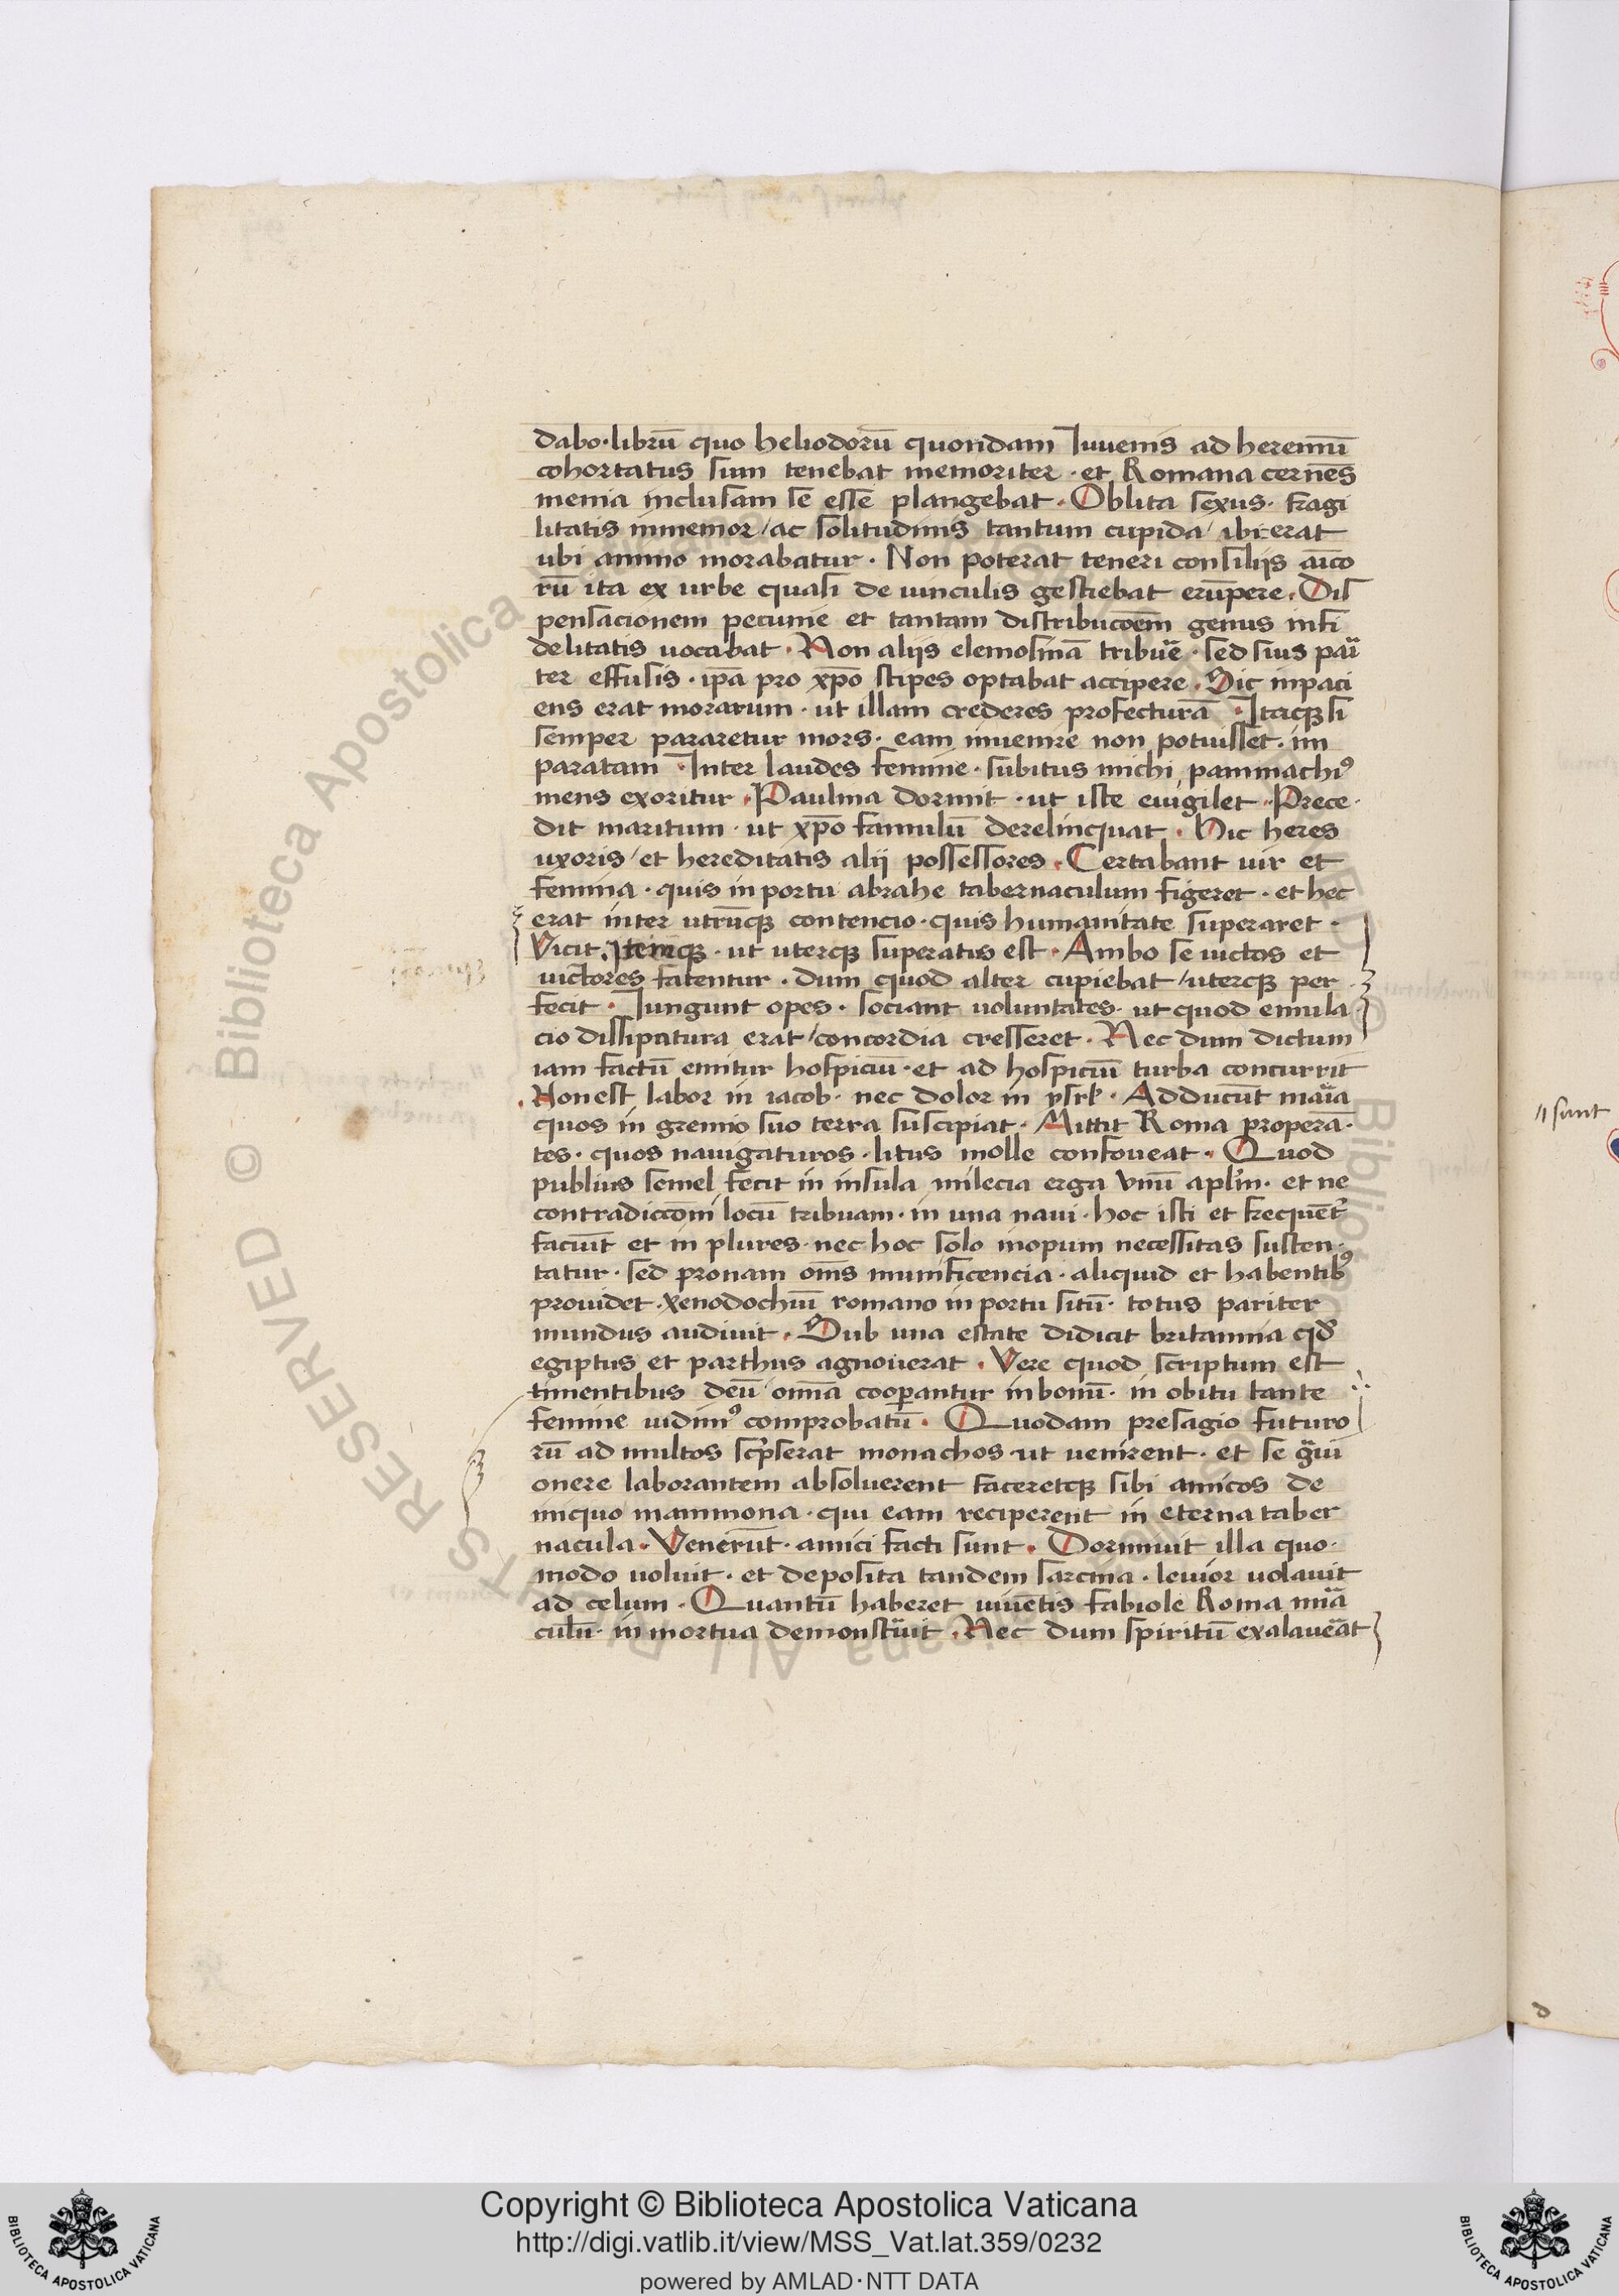 dabo·librū quo heliodorū quondam Iuuenis ad heremū
cohortatus sum tenebat memoriter · et Romana cernēs
menia inclusam se esse plangebat · Oblita sexus · fragi
litatis inmemor / ac solitudinis tantum cupida / ibi erat
ubi animo morabatur · Non poterat teneri consiliis amīco
rū ita ex urbe quasi de uinculis gestiebat erūpere · Dis
pensacionem pecunie et tantam distribucoēm genus infi
delitatis uocabat · Non aliis elemosinā tribuē · sed suis pari
ter effusis · ipā pro xp̄o stipes optabat accipere · Sic inpaci
ens erat morarum · ut illam crederes profecturā · Itaqꝫ si
semper pararetur mors · eam inuenire non potuisset · im
paratam · Inter laudes femine · subitus michi pammachiꝰ
mens exoritur · Paulina dormit · ut iste euigilet · Prece
dit maritum · ut xp̄o famulū derelinquat · Hic heres
uxoris / et hereditatis alii possessores · Certabant uir et
femina · quis in portu abrahe tabernaculum figeret · et hec
erat inter utrūqꝫ contencio · quis humanitate superaret ·
Vicit · ut uterqꝫ superatis est · Ambo se uictos et
uictores fatentur · dum quod alter cupiebat / uterqꝫ per
fecit · Iungunt opes · sociant uoluntates · ut quod emula
cio dissipatura erat / concordia cresseret · Nec dum dictum
iam factū emitur hospiciū · et ad hospiciū turba concurrit
Non est labor in iacob · nec dolor in ysrl · Adducūt maria
quos in gremio suo terra suscipiat · Mittit Roma properā
tes · quos nauigaturos · litus molle confoueat · Quod
publius semel fecit in insula milecia erga vnū aplm · et ne
contradicconi locū tribuam · in una naui · hoc isti et frequēt
faciūt et in plures · nec hoc solo inopum necessitas susten
tatur · sed pronam om̄s munificencia · aliquid et habentibꝰ
prouidet · xenodochiū romano in portu sitū · totus pariter
mundus audiuit · Sub una estate didicit britannia qd
egiptus et parthus agnouerat · Vere quod scriptum est
timentibus deū omīa cooperantur in bonū · in obitu tante
femine uidimꝰ comprobatū · Quodam presagio futuro
rū ad multos scpserat monachos · ut uenirent · et se graui
onere laborantem absoluerent faceretqꝫ sibi amicos de
iniquo mammona · qui eam reciperent in eterna taber
nacula · Venerūt · amici facti sunt · Dormiuit illa quo
modo uoluit · et deposita tandem sarcina · leuior uolauit
ad celum · Quantū haberet uiuētis fabiole Roma mira
culū · in mortua demonstrauit · Nec dum spiritū exalauerat
//sunt
d
Copyright © Biblioteca Apostolica Vaticana
http://digi.vatlib.it/view/MSS_Vat.lat.359/0232
powered by AMLAD·NTT DATA